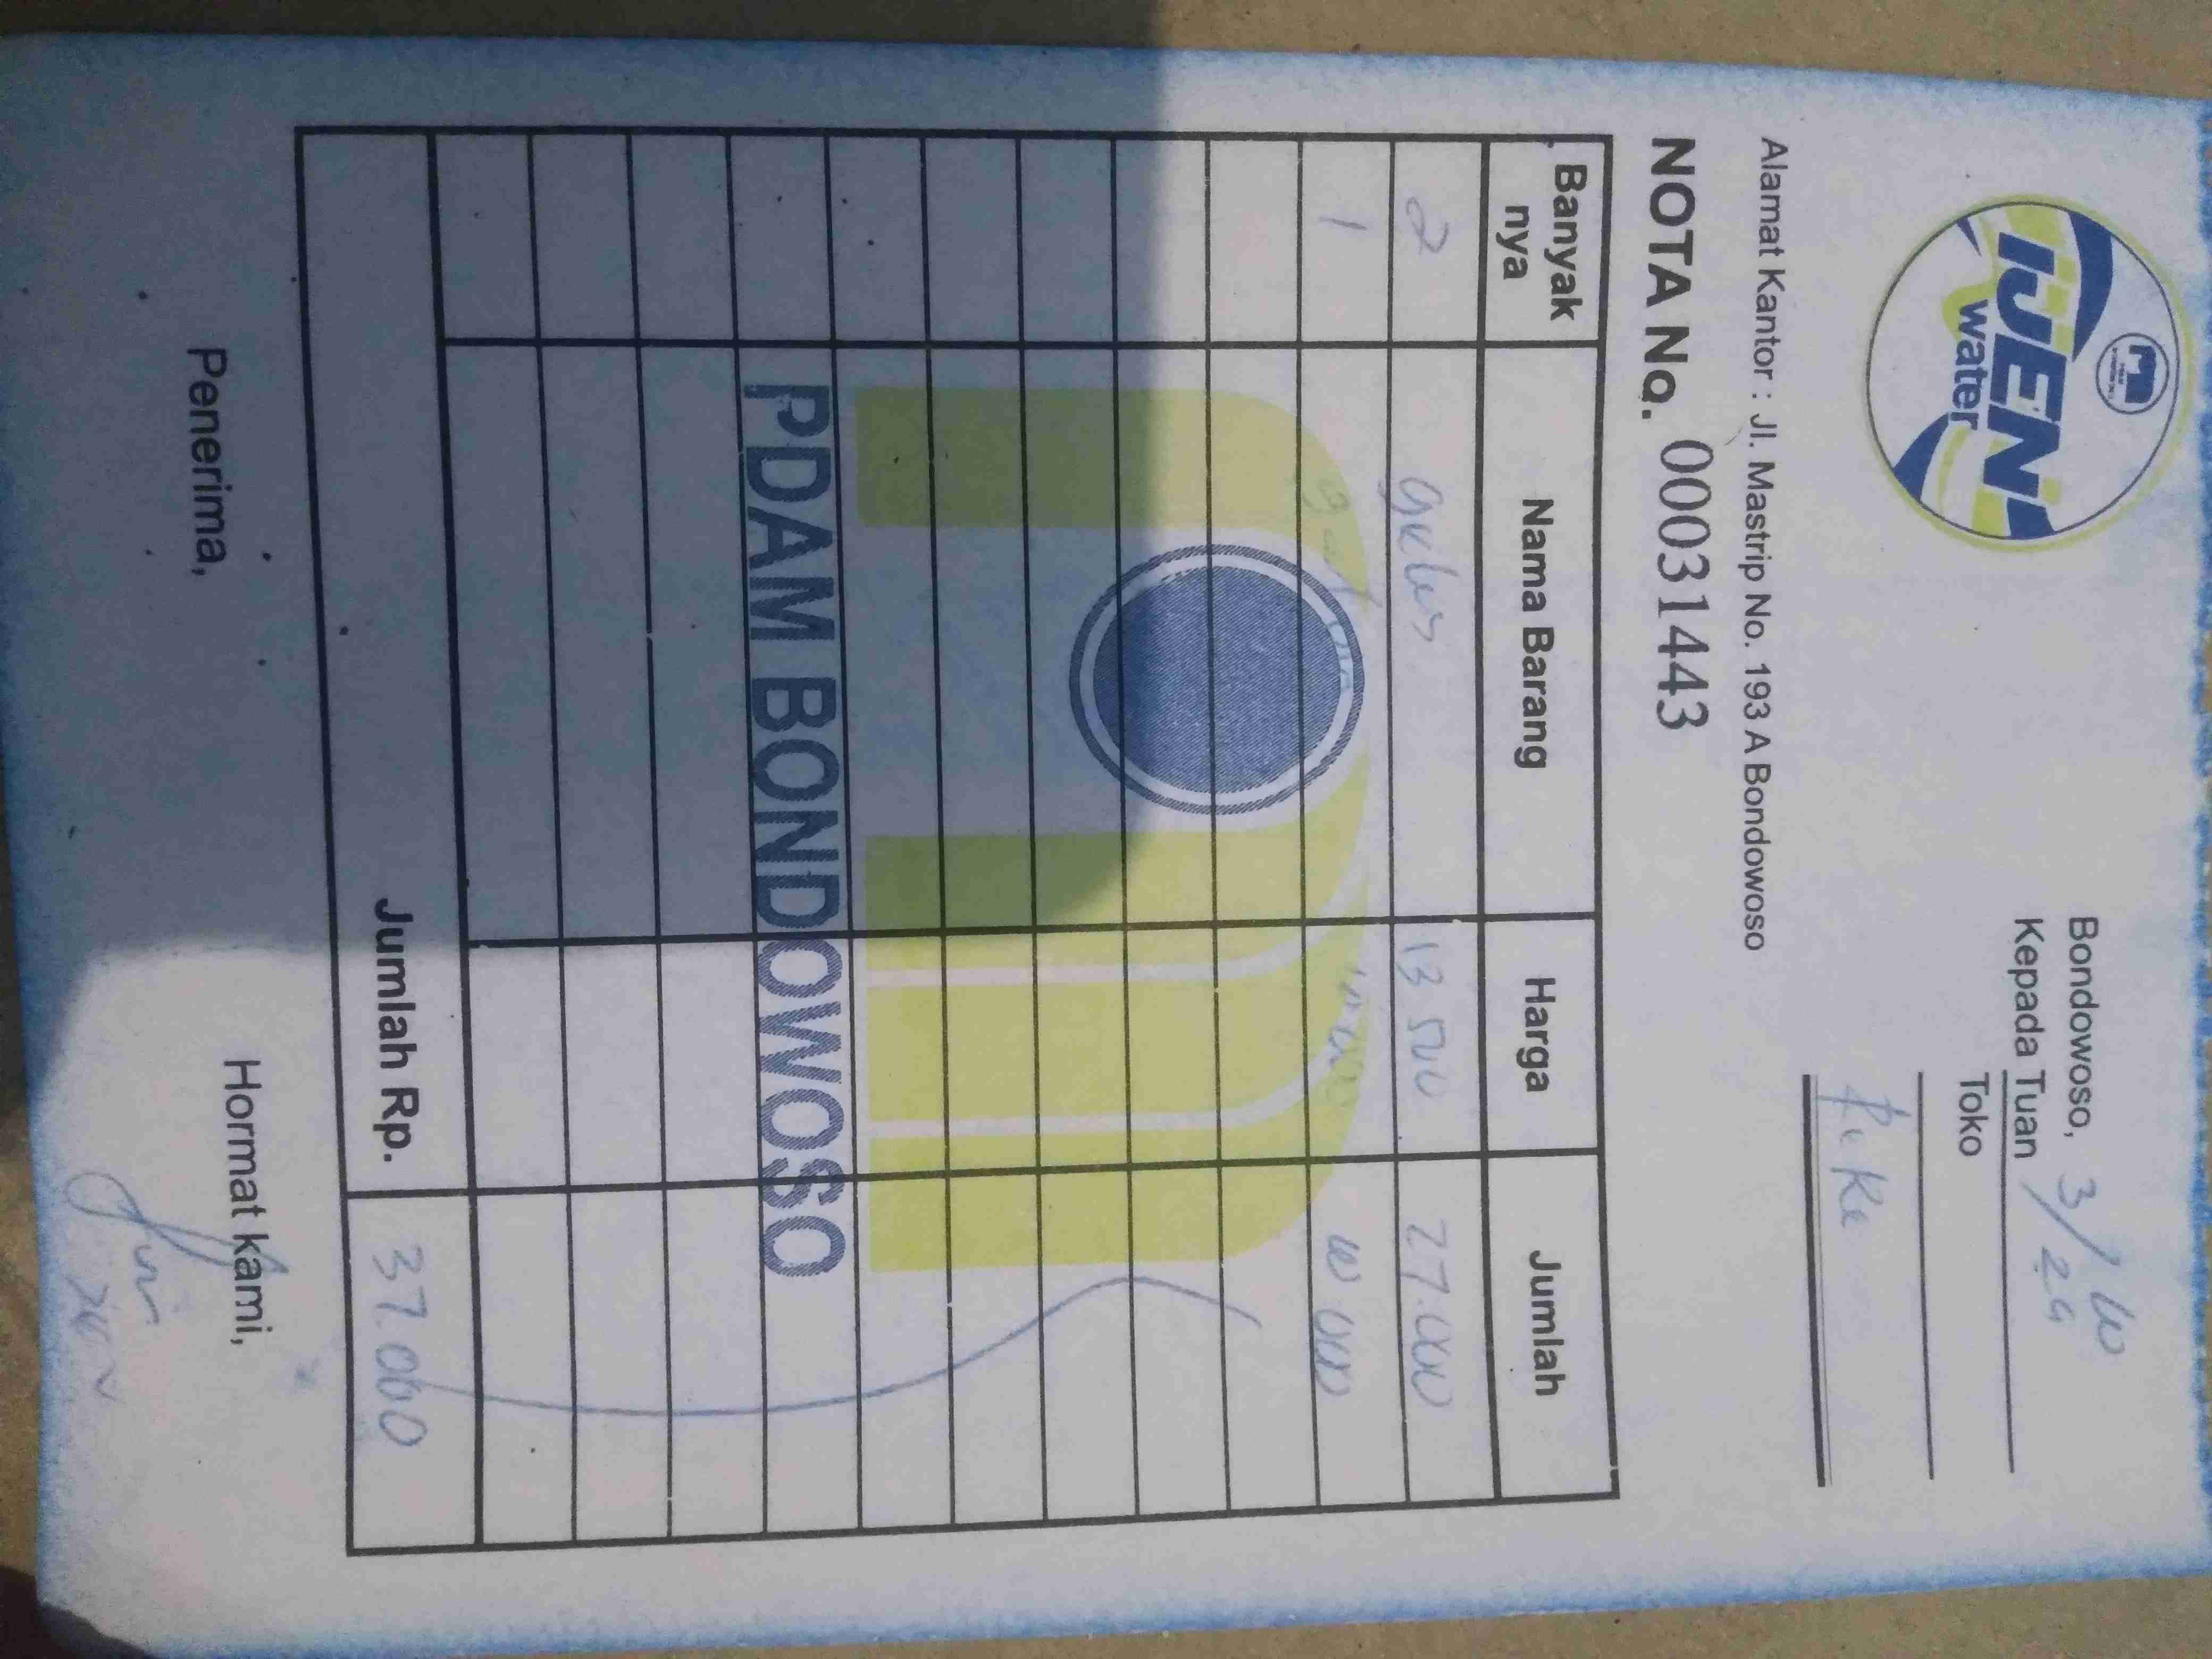 IJEN
water
Bondowoso, 3/10
24
Kepada Tuan
Toko
Alamat Kantor : Jl. Mastrip No. 193 A Bondowoso
NOTA No. 00031443
Banyak nya Nama Barang Harga Jumlah
2 gelas 13 500 27.000
1 10 000
PDAM BONDOWOSO
Jumlah Rp. 37.000
Penerima, Hormat kami,